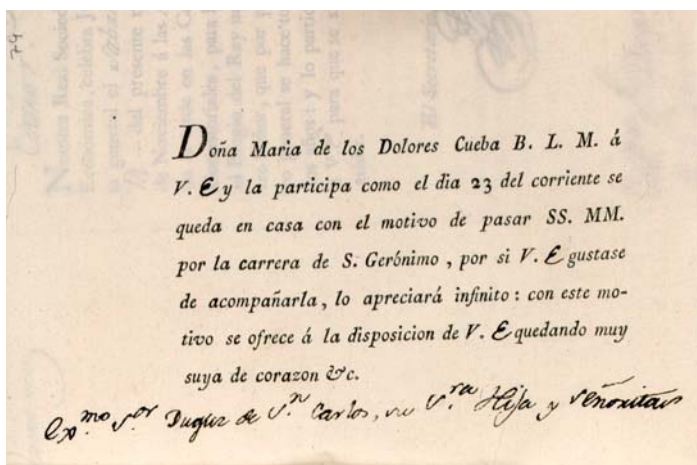 79
Doña Maria de los Dolores Cueba B. L. M. á
V. E y la participa como el dia 23 del corriente se
queda en casa con el motivo de pasar SS. MM.
por la carrera de S. Gerónimo, por si V. E gustase
de acompañarla, lo apreciará infinito: con este mo-
tivo se ofrece á la disposicion de V. E quedando muy
suya de corazon &c.
Exmo Sor Duque de Sn Carlos, su Sra Hija y Señoritas